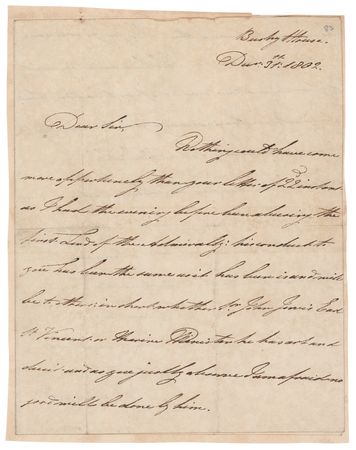 83
Bushy House.
Decr. 31st. 1802.
Dear Sir,
Nothing could have come
more opportunely than your letter of 22d instant
as I had the evening before been abusing the
first Lord of the Admiralty: his conduct to
you has been the same as it has been is and will
be to others: in short whether Sr. John Jervis Earl
St. Vincent or Marine Minister he has art and
deceit and as you justly observe I am afraid no
good will be done by him.